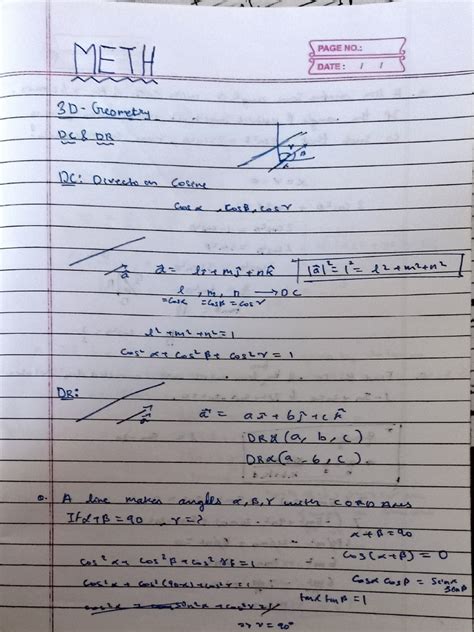 METH
PAGE NO.:
DATE: / /
3D-Geometry
DC & DR
DC: Direction Cosine
Cosα, Cosβ, Cosγ
a⃗ = lî + mĵ + nk̂ |a⃗|² = 1² = l² + m² + n²
l, m, n → DC
=Cosα =Cosβ =Cosγ
l² + m² + n² = 1
Cos²α + Cos²β + Cos²γ = 1
DR:
a⃗ = aî + bĵ + ck̂
DRα(a, b, c)
DRα(a, b, c)
Q. A line makes angles α, β, γ with CORD Axes
If α+β = 90, γ = ?
α+β = 90
Cos(α+β) = 0
Cos²α + Cos²β + Cos²γ = 1
Cosα Cosβ = Sinα Sinβ
Cos²α + Cos²(90-α) + Cos²γ = 1
tanα tanβ = 1
=> γ = 90°